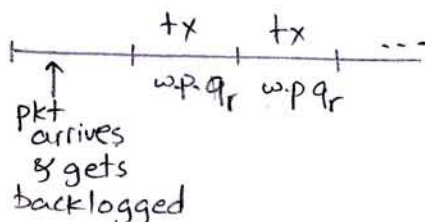 tx tx ...
w.p. qr w.p qr
pkt
arrives
& gets
backlogged